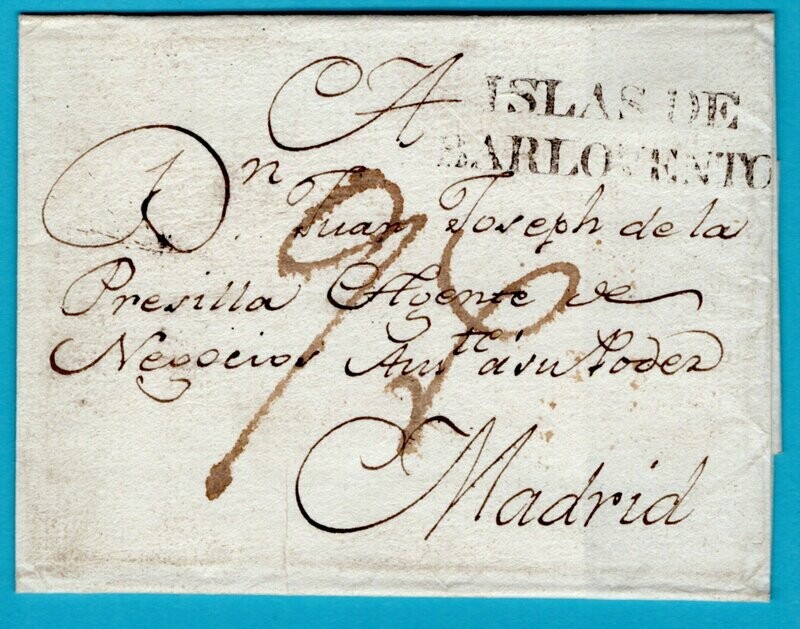 A
ISLAS DE
BARLOVENTO
Dn. Juan Joseph de la
Presilla Agente de
Negocios Aus.te à su Poder
Madrid